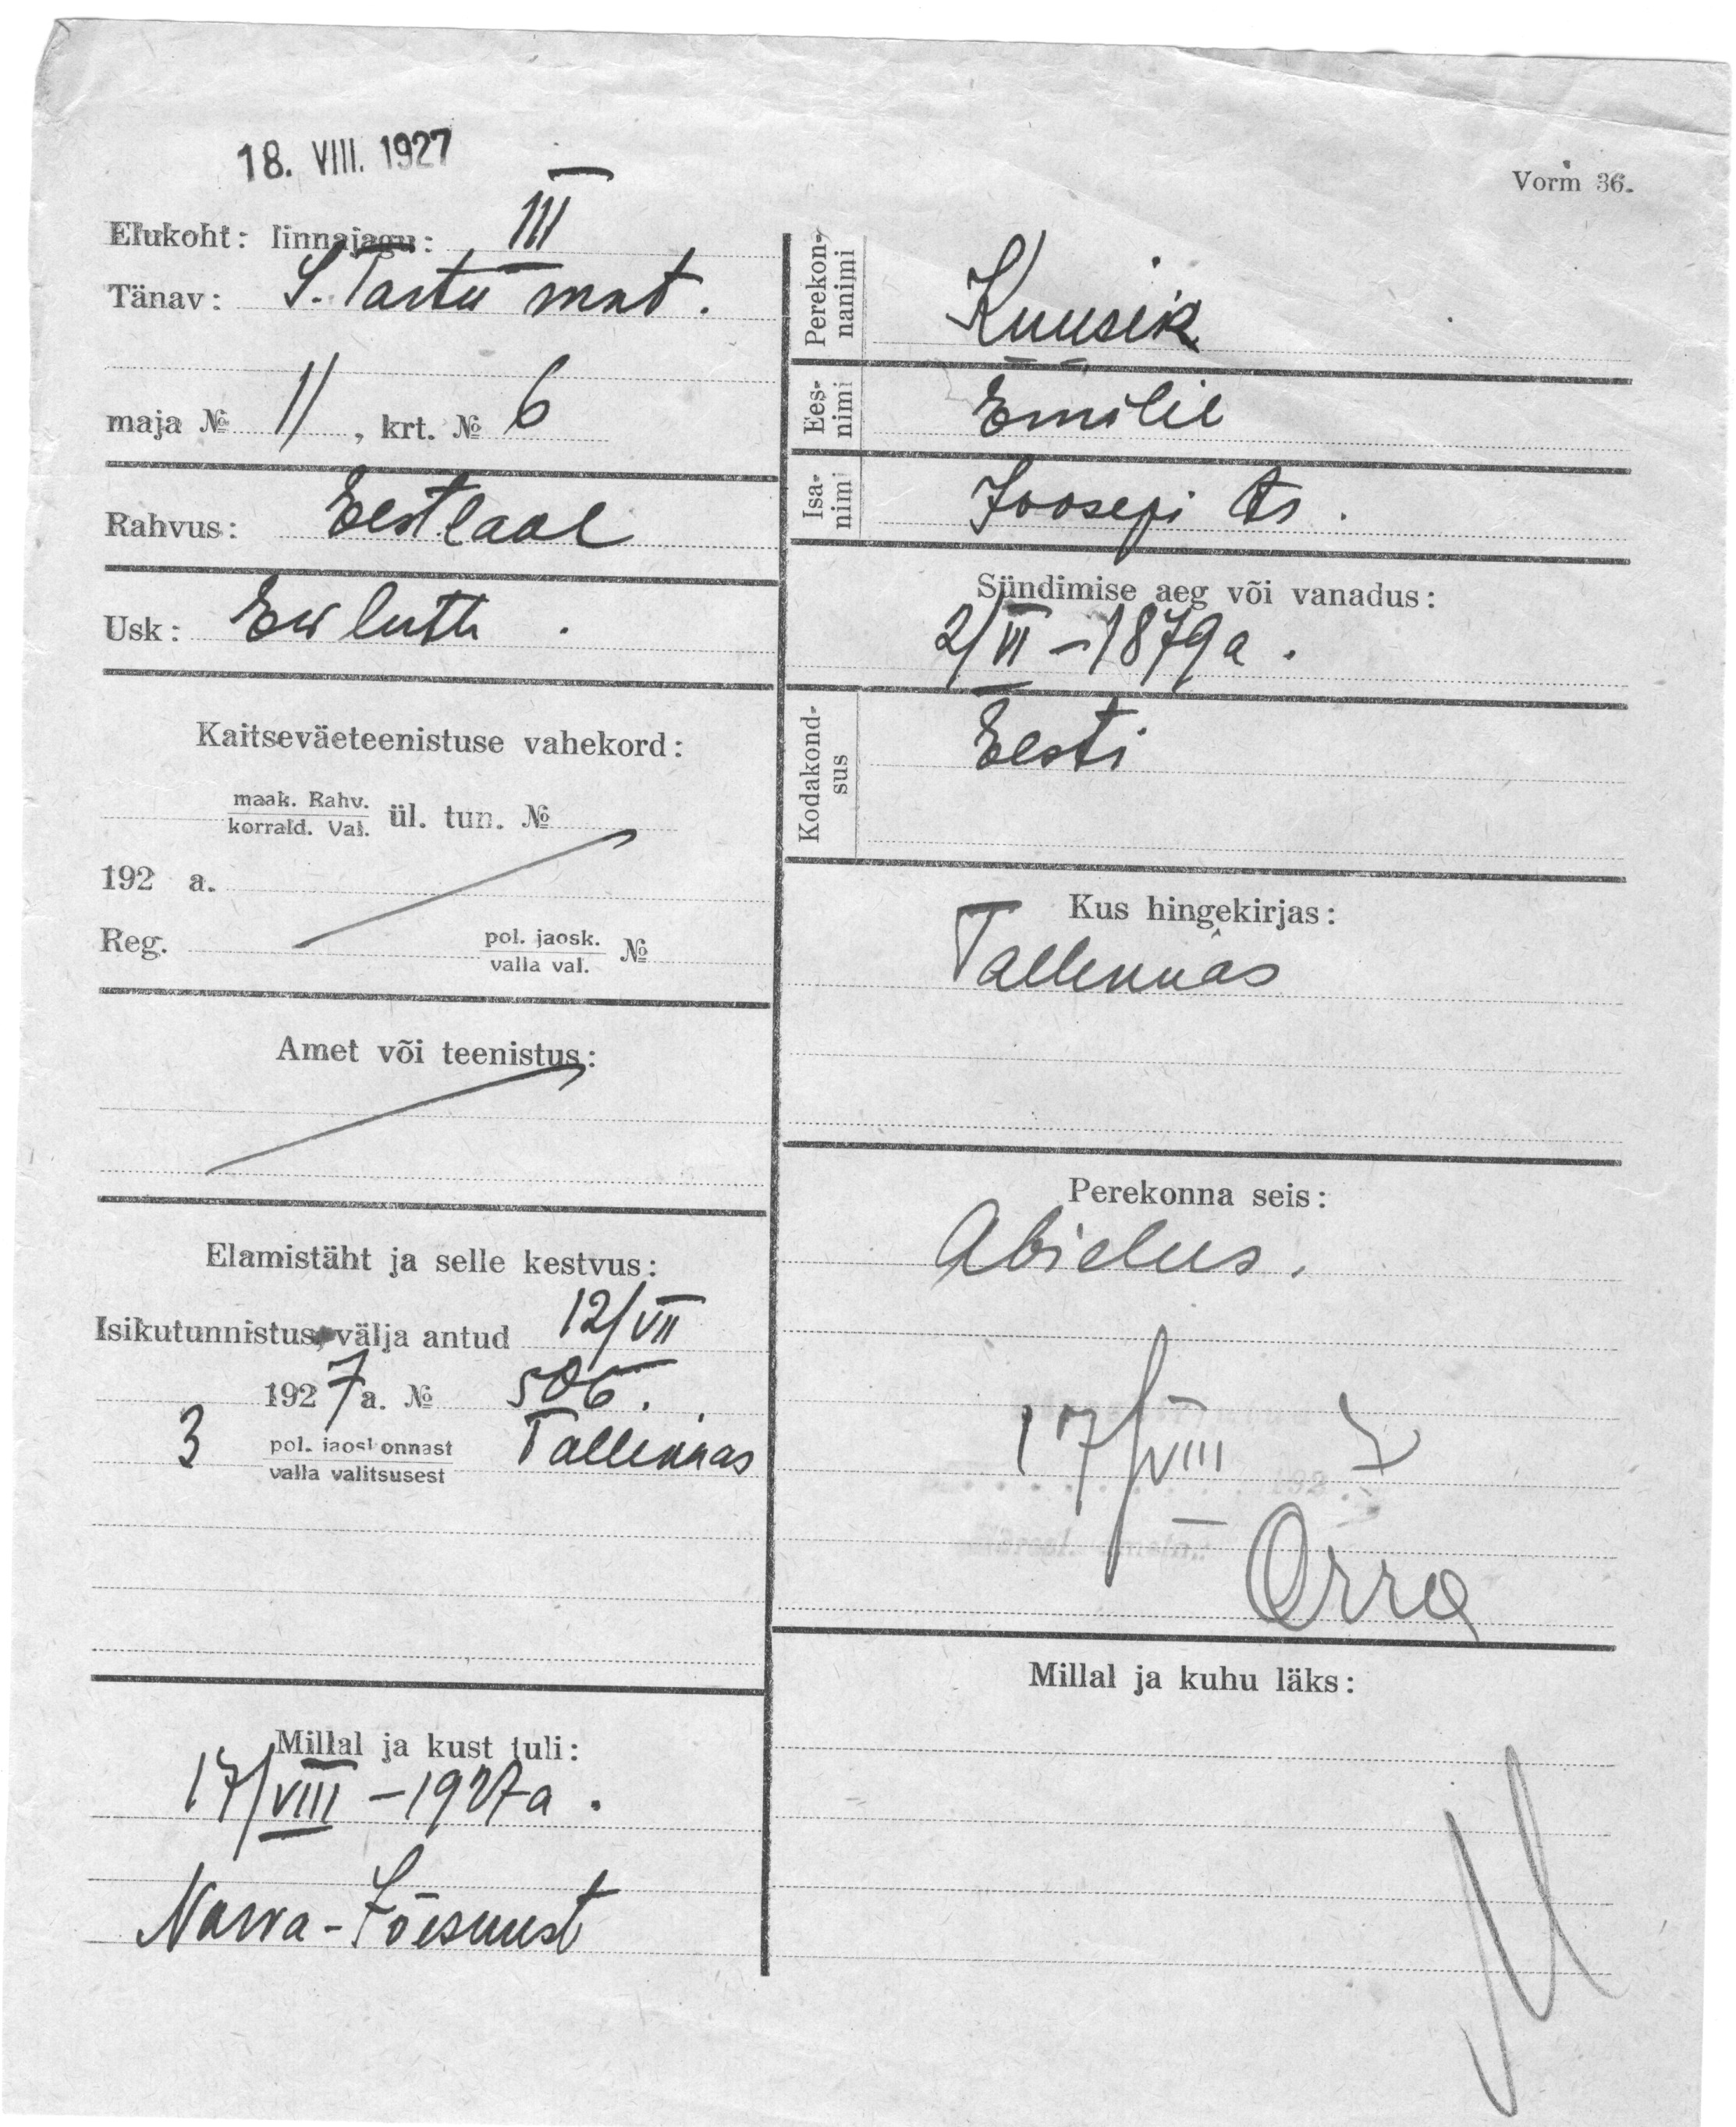 18. VIII. 1927
Vorm 36.
Elukoht: linnajagu: III
Tänav: S. Tartu mnt.
maja № 11, krt. № 6
Rahvus: Eestlane
Usk: Ew luth.
Kaitseväeteenistuse vahekord:
maak. Rahv.
korrald. Val. ül. tun. №
192 a.
Reg. pol. jaosk.
valla val. №
Amet või teenistus:
Elamistäht ja selle kestvus:
Isikutunnistus, välja antud 12/VII
1927 a. № 506.
3 pol. jaoskonnast Tallinnas
valla valitsusest
Millal ja kust tuli:
17/VIII – 1927 a.
Narva-Jõesuust
Perekon-
nanimi Kuusik
Ees-
nimi Emilie
Isa-
nimi Joosepi tr.
Sündimise aeg või vanadus:
2/VI – 1879 a.
Kodakond-
sus Eesti
Kus hingekirjas:
Tallinnas
Perekonna seis:
Abielus.
17/VIII
192
Orra
Millal ja kuhu läks: